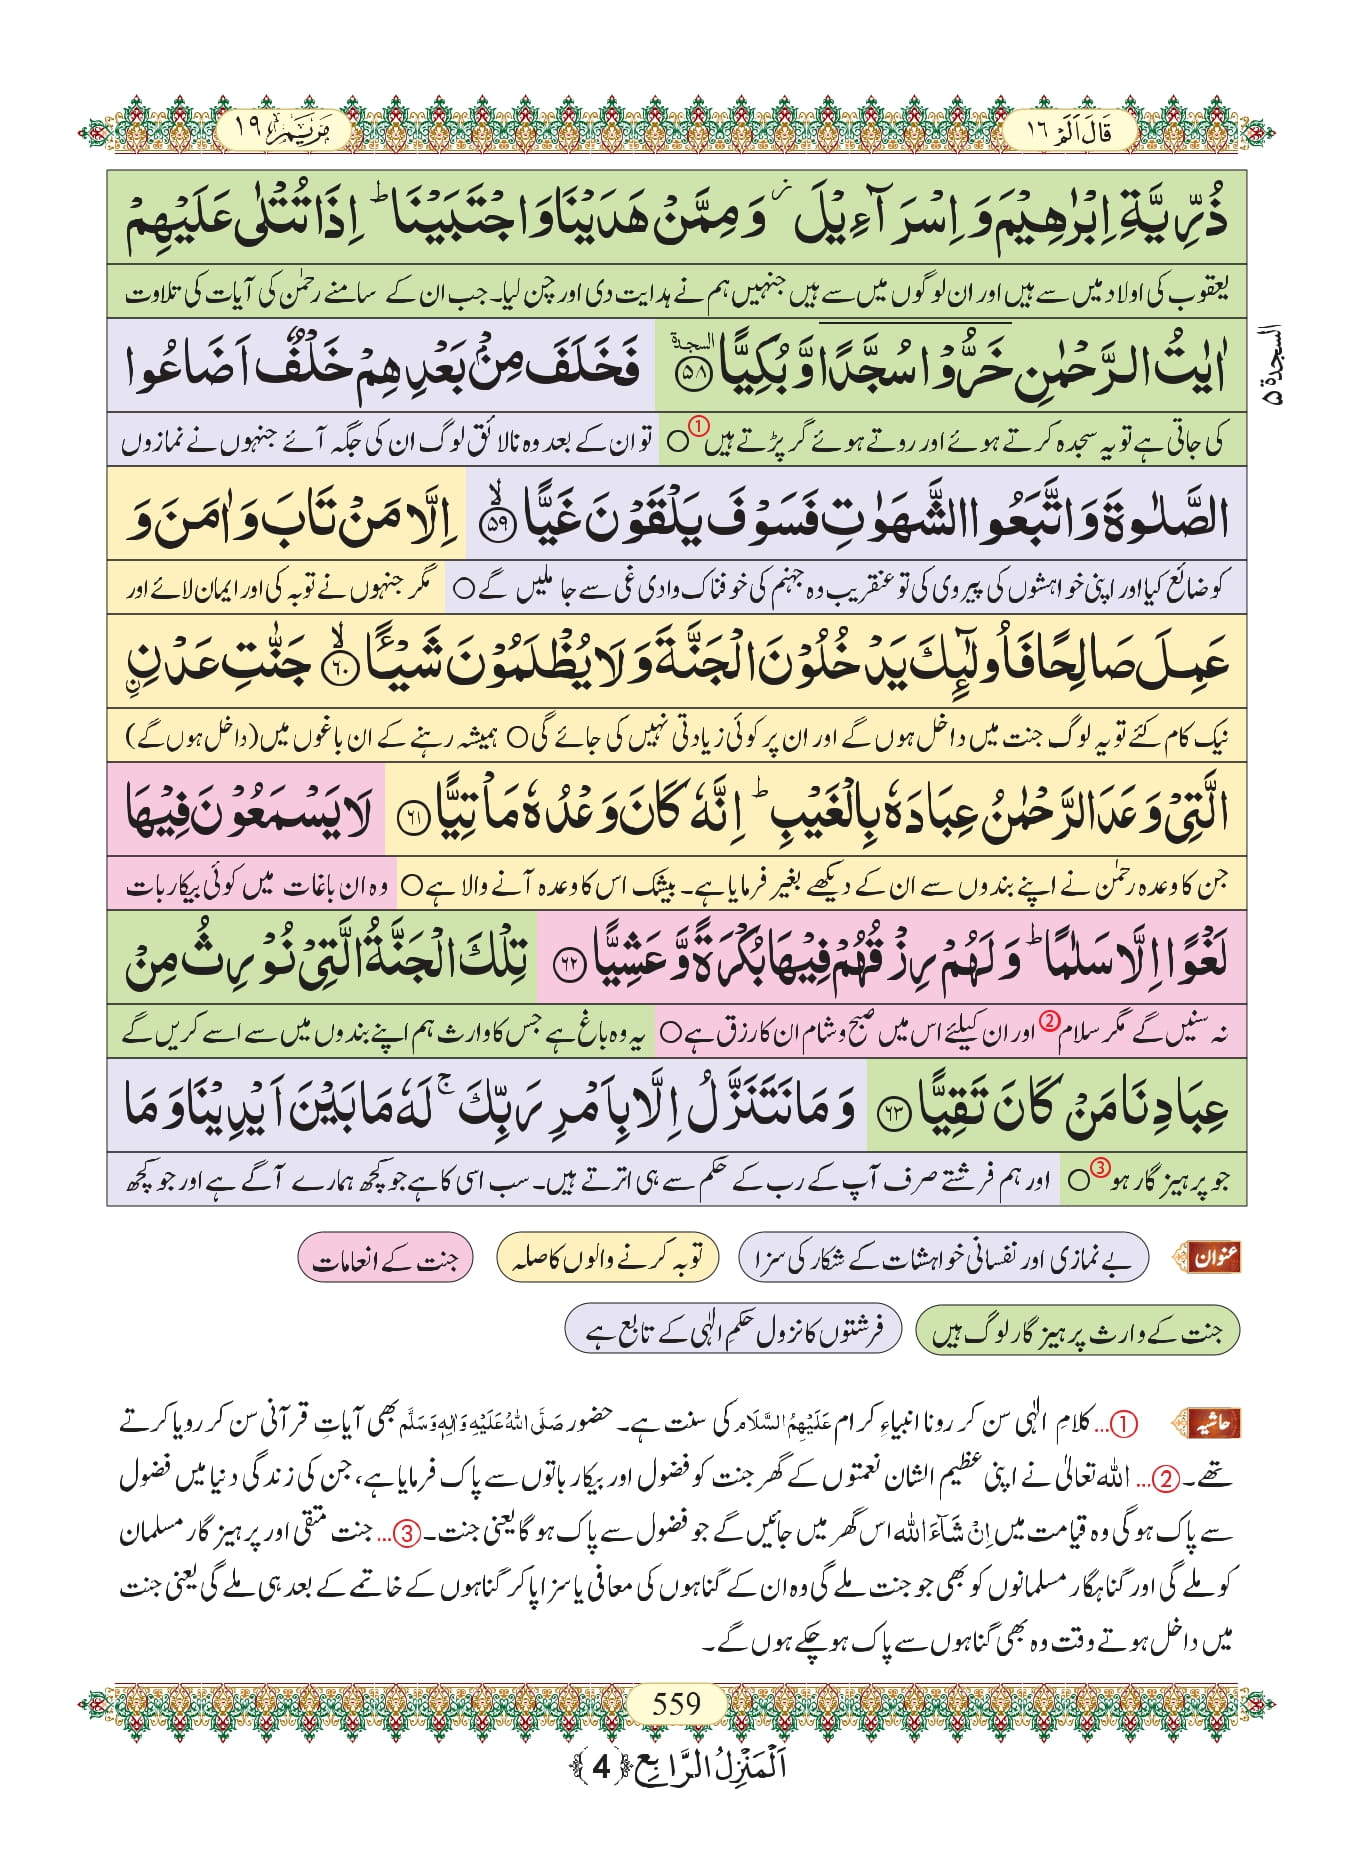 قَالَ اَلَمْ ١٦
مَرْيَم ١٩
ذُرِّيَّةِ اِبْرٰهِيْمَ وَ اِسْرَآءِيْلَ ٘ وَ مِمَّنْ هَدَيْنَا وَ اجْتَبَيْنَا ؕ اِذَا تُتْلٰى عَلَيْهِمْ
یعقوب کی اولاد میں سے ہیں اور ان لوگوں میں سے ہیں جنہیں ہم نے ہدایت دی اور چن لیا۔ جب ان کے سامنے رحمٰن کی آیات کی تلاوت
اٰيٰتُ الرَّحْمٰنِ خَرُّوْا سُجَّدًا وَّ بُكِيًّا السجدة ﴿۵۸﴾ فَخَلَفَ مِنْۢ بَعْدِهِمْ خَلْفٌ اَضَاعُوا
السجدة ۵
کی جاتی ہے تو یہ سجدہ کرتے ہوئے اور روتے ہوئے گر پڑتے ہیں① ○ تو ان کے بعد وہ نالائق لوگ ان کی جگہ آئے جنہوں نے نمازوں
الصَّلٰوةَ وَ اتَّبَعُوا الشَّهَوٰتِ فَسَوْفَ يَلْقَوْنَ غَيًّا ۙ﴿۵۹﴾ اِلَّا مَنْ تَابَ وَ اٰمَنَ وَ
کو ضائع کیا اور اپنی خواہشوں کی پیروی کی تو عنقریب وہ جہنم کی خوفناک وادی غی سے جا ملیں گے ○ مگر جنہوں نے توبہ کی اور ایمان لائے اور
عَمِلَ صَالِحًا فَاُولٰٓىِٕكَ يَدْخُلُوْنَ الْجَنَّةَ وَ لَا يُظْلَمُوْنَ شَيْـًٔا ۙ﴿۶۰﴾ جَنّٰتِ عَدْنِ ِ
نیک کام کئے تو یہ لوگ جنت میں داخل ہوں گے اور ان پر کوئی زیادتی نہیں کی جائے گی ○ ہمیشہ رہنے کے ان باغوں میں (داخل ہوں گے)
الَّتِيْ وَعَدَ الرَّحْمٰنُ عِبَادَهٗ بِالْغَيْبِ ؕ اِنَّهٗ كَانَ وَعْدُهٗ مَاْتِيًّا ﴿۶۱﴾ لَا يَسْمَعُوْنَ فِيْهَا
جن کا وعدہ رحمٰن نے اپنے بندوں سے ان کے دیکھے بغیر فرمایا ہے۔ بیشک اس کا وعدہ آنے والا ہے ○ وہ ان باغات میں کوئی بیکار بات
لَغْوًا اِلَّا سَلٰمًا ؕ وَ لَهُمْ رِزْقُهُمْ فِيْهَا بُكْرَةً وَّ عَشِيًّا ﴿۶۲﴾ تِلْكَ الْجَنَّةُ الَّتِيْ نُوْرِثُ مِنْ
نہ سنیں گے مگر سلام② اور ان کیلئے اس میں صبح و شام ان کا رزق ہے ○ یہ وہ باغ ہے جس کا وارث ہم اپنے بندوں میں سے اسے کریں گے
عِبَادِنَا مَنْ كَانَ تَقِيًّا ﴿۶۳﴾ وَ مَا نَتَنَزَّلُ اِلَّا بِاَمْرِ رَبِّكَ ۚ لَهٗ مَا بَيْنَ اَيْدِيْنَا وَ مَا
جو پرہیز گار ہو③ ○ اور ہم فرشتے صرف آپ کے رب کے حکم سے ہی اترتے ہیں۔ سب اسی کا ہے جو کچھ ہمارے آگے ہے اور جو کچھ
عنوان بے نمازی اور نفسانی خواہشات کے شکار کی سزا توبہ کرنے والوں کا صلہ جنت کے انعامات
جنت کے وارث پرہیز گار لوگ ہیں فرشتوں کا نزول حکمِ الٰہی کے تابع ہے
حاشیہ ①... کلامِ الٰہی سن کر رونا انبیاءِ کرام عَلَيْهِمُ السَّلَام کی سنت ہے۔ حضور صَلَّى اللهُ عَلَيْهِ وَاٰلِهٖ وَسَلَّم بھی آیاتِ قرآنی سن کر رویا کرتے
تھے۔ ②... اللہ تعالٰی نے اپنی عظیم الشان نعمتوں کے گھر جنت کو فضول اور بیکار باتوں سے پاک فرمایا ہے، جن کی زندگی دنیا میں فضول
سے پاک ہوگی وہ قیامت میں اِنْ شَآءَ اللہ اس گھر میں جائیں گے جو فضول سے پاک ہوگا یعنی جنت۔ ③... جنت متقی اور پرہیز گار مسلمان
کو ملے گی اور گناہگار مسلمانوں کو بھی جو جنت ملے گی وہ ان کے گناہوں کی معافی یا سزا پاکر گناہوں کے خاتمے کے بعد ہی ملے گی یعنی جنت
میں داخل ہوتے وقت وہ بھی گناہوں سے پاک ہوچکے ہوں گے۔
559
اَلْمَنْزِلُ الرَّابِع ﴿4﴾